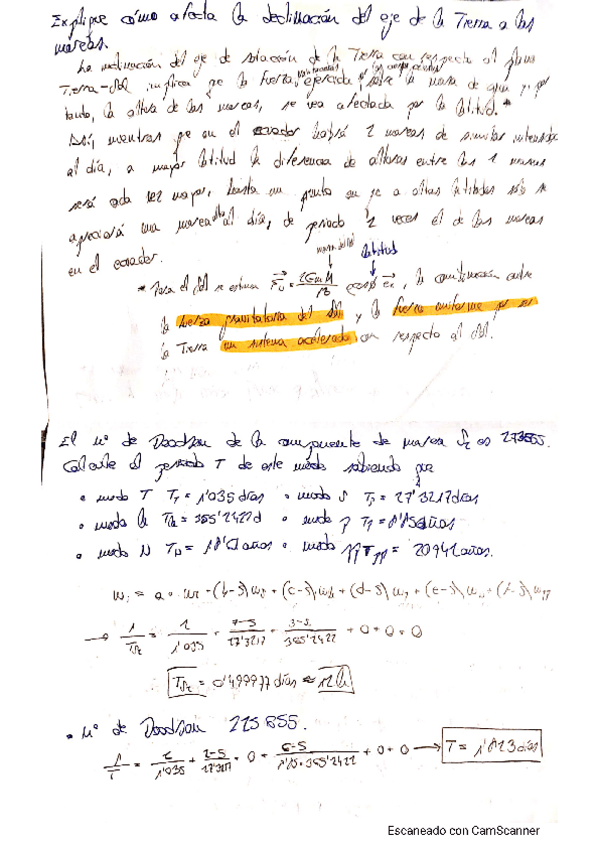 Explique cómo afecta la declinación del eje de la Tierra a las
mareas.
La inclinación del eje de rotación de la Tierra con respecto al plano
Tierra-Sol implica que la fuerza ejercida sobre la masa de agua y por
tanto, la altura de las mareas, se vea afectada por la latitud.*
Así, mientras que en el ecuador habrá 2 mareas de similar intensidad
al día, a mayor latitud la diferencia de alturas entre las 2 mareas
será cada vez mayor, hasta un punto en que a altas latitudes sólo se
apreciará una marea al día, de periodo 2 veces el de las mareas
en el ecuador.
latitud
* Para el Sol se estima
la combinación entre
la fuerza gravitatoria del Sol y la fuerza uniforme por ser
la Tierra un sistema acelerado con respecto al Sol.
El nº de Doodson de la componente de marea S2 es 273555.
Calcule el periodo T de este modo sabiendo que
• modo T T = 1'035 días • modo S Ts = 27'3217 días
• modo h Th = 365'2422 d • modo p
• modo N • modo PP Tpp = 20942 años.
→ 1/T = 2/1'035 + 7-5/27'3217 + 3-5/365'2422 + 0 + 0 + 0
T = 0'499977 días ≈ 12 h
• Nº de Doodson 225855.
1/T = 2/1'035 + 2-5/27'3217 + 0 +
+ 0 + 0 → T = 1'823 días
Escaneado con CamScanner